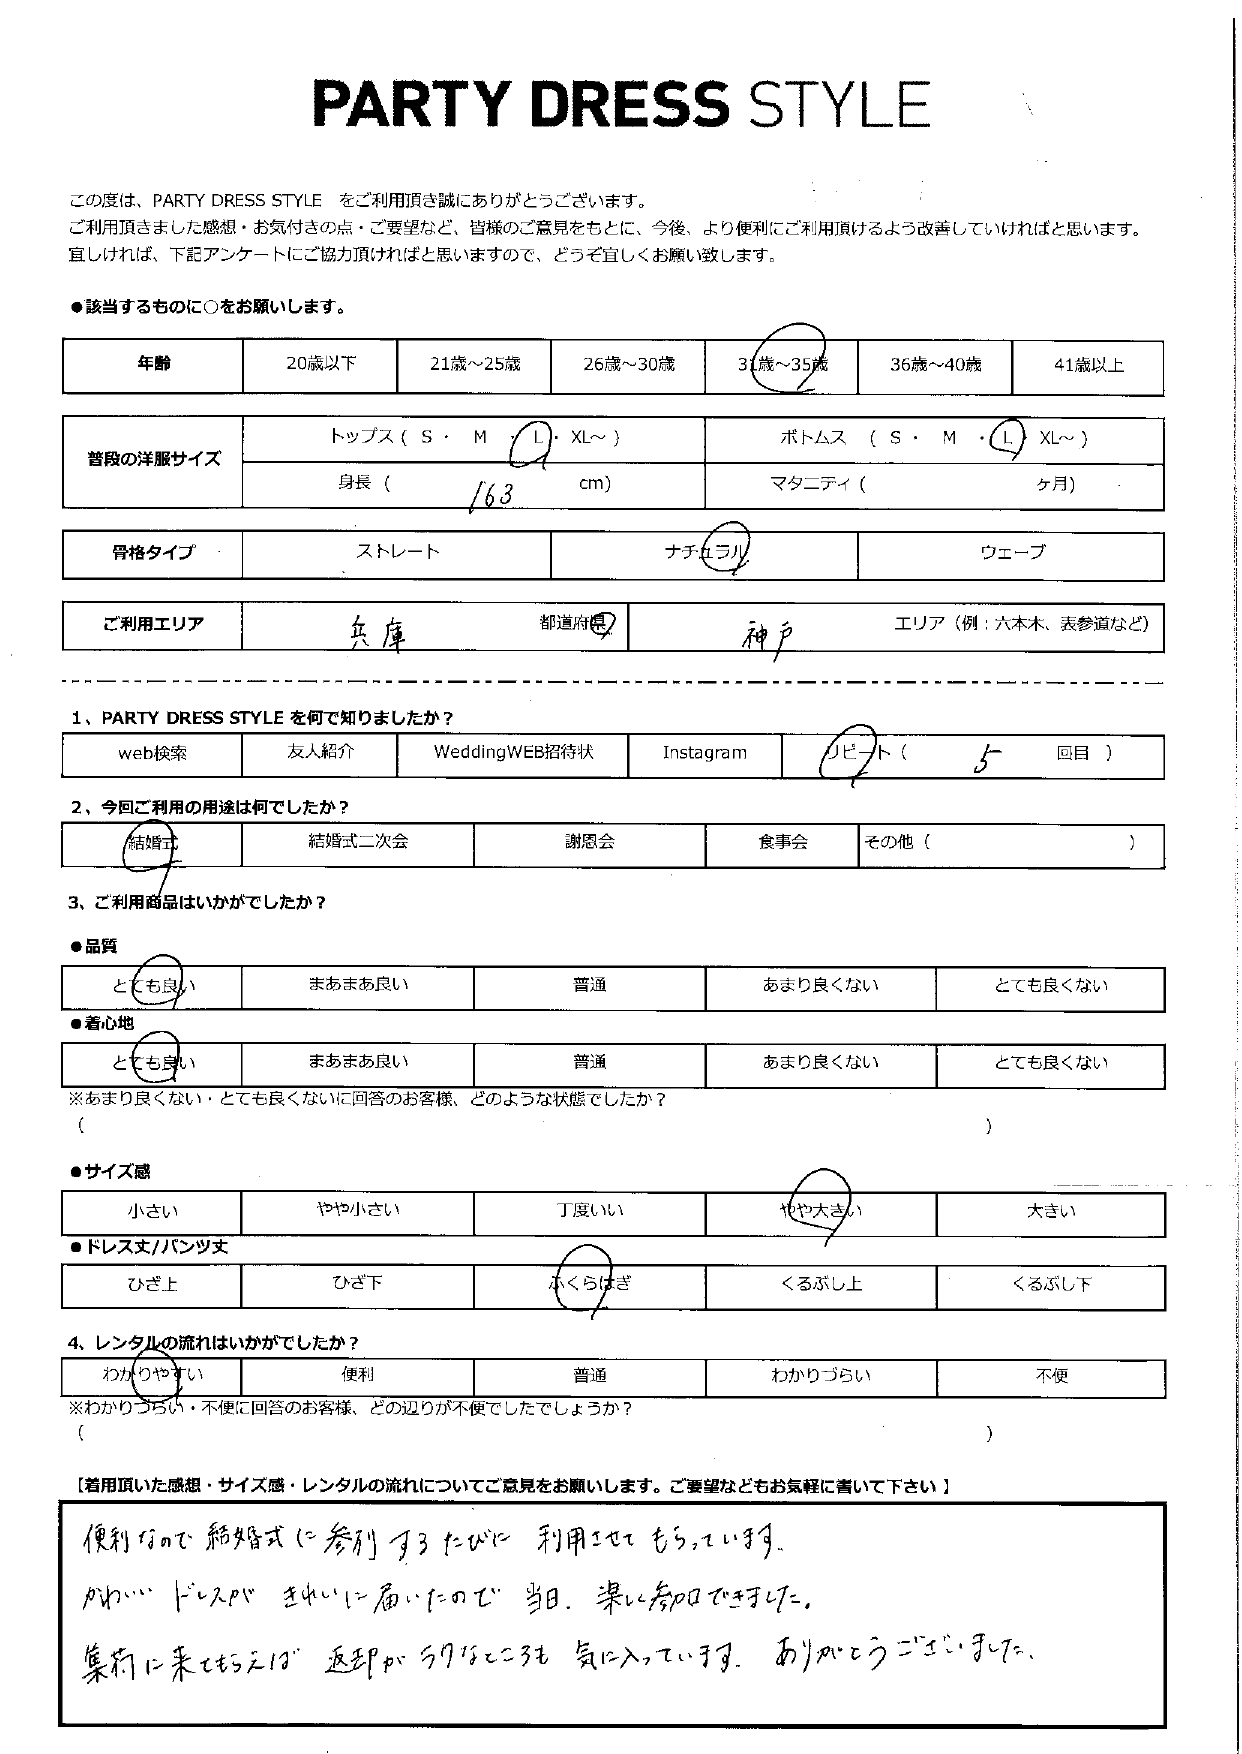 PARTY DRESS STYLE
この度は、PARTY DRESS STYLE をご利用頂き誠にありがとうございます。
ご利用頂きました感想・お気付きの点・ご要望など、皆様のご意見をもとに、今後、より便利にご利用頂けるよう改善していければと思います。
宜しければ、下記アンケートにご協力頂ければと思いますので、どうぞ宜しくお願い致します。
●該当するものに○をお願いします。
年齢 20歳以下 21歳～25歳 26歳～30歳 31歳～35歳 36歳～40歳 41歳以上
普段の洋服サイズ トップス ( S ・ M ・ L ・ XL～ ) ボトムス ( S ・ M ・ L ・ XL～ )
身長 ( 163 cm) マタニティ ( ヶ月)
骨格タイプ ストレート ナチュラル ウェーブ
ご利用エリア 兵庫 都道府県 神戸 エリア（例：六本木、表参道など）
1、PARTY DRESS STYLE を何で知りましたか？
web検索 友人紹介 WeddingWEB招待状 Instagram リピート ( 5 回目 )
2、今回ご利用の用途は何でしたか？
結婚式 結婚式二次会 謝恩会 食事会 その他 ( )
3、ご利用商品はいかがでしたか？
●品質
とても良い まあまあ良い 普通 あまり良くない とても良くない
●着心地
とても良い まあまあ良い 普通 あまり良くない とても良くない
※あまり良くない・とても良くないに回答のお客様、どのような状態でしたか？
( )
●サイズ感
小さい やや小さい 丁度いい やや大きい 大きい
●ドレス丈/パンツ丈
ひざ上 ひざ下 ふくらはぎ くるぶし上 くるぶし下
4、レンタルの流れはいかがでしたか？
わかりやすい 便利 普通 わかりづらい 不便
※わかりづらい・不便に回答のお客様、どの辺りが不便でしたでしょうか？
( )
【着用頂いた感想・サイズ感・レンタルの流れについてご意見をお願いします。ご要望などもお気軽に書いて下さい 】
便利なので 結婚式に 参列するたびに 利用させてもらっています。
かわいい ドレスが きれいに届いたので 当日、楽しく参加できました。
集荷に来てもらえば 返却がラクなところも 気に入っています。ありがとうございました。